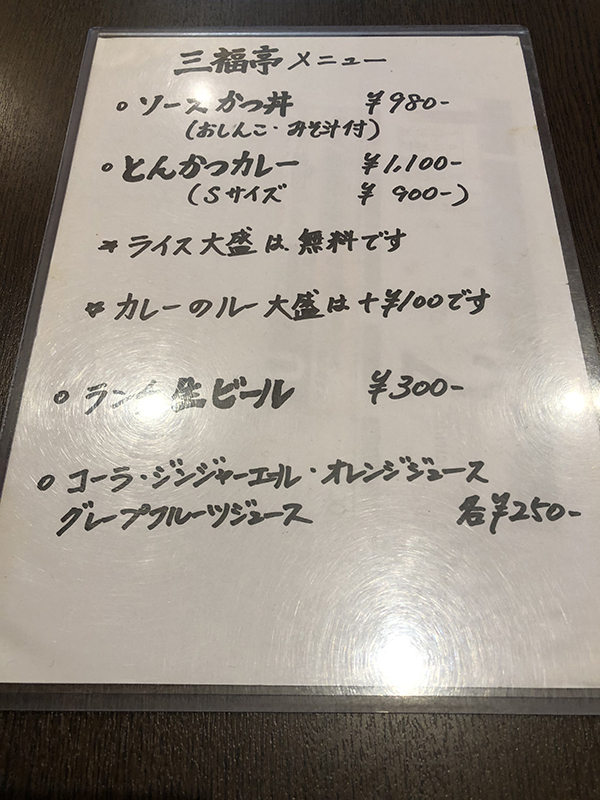 三福亭メニュー
○ ソースかつ丼 ¥980-
(おしんこ・みそ汁付)
○ とんかつカレー ¥1,100-
(Sサイズ ¥900-)
* ライス大盛は無料です
* カレーのルー大盛は+¥100です
○ ランチ生ビール ¥300-
○ コーラ・ジンジャーエール・オレンジジュース
グレープフルーツジュース 各¥250-